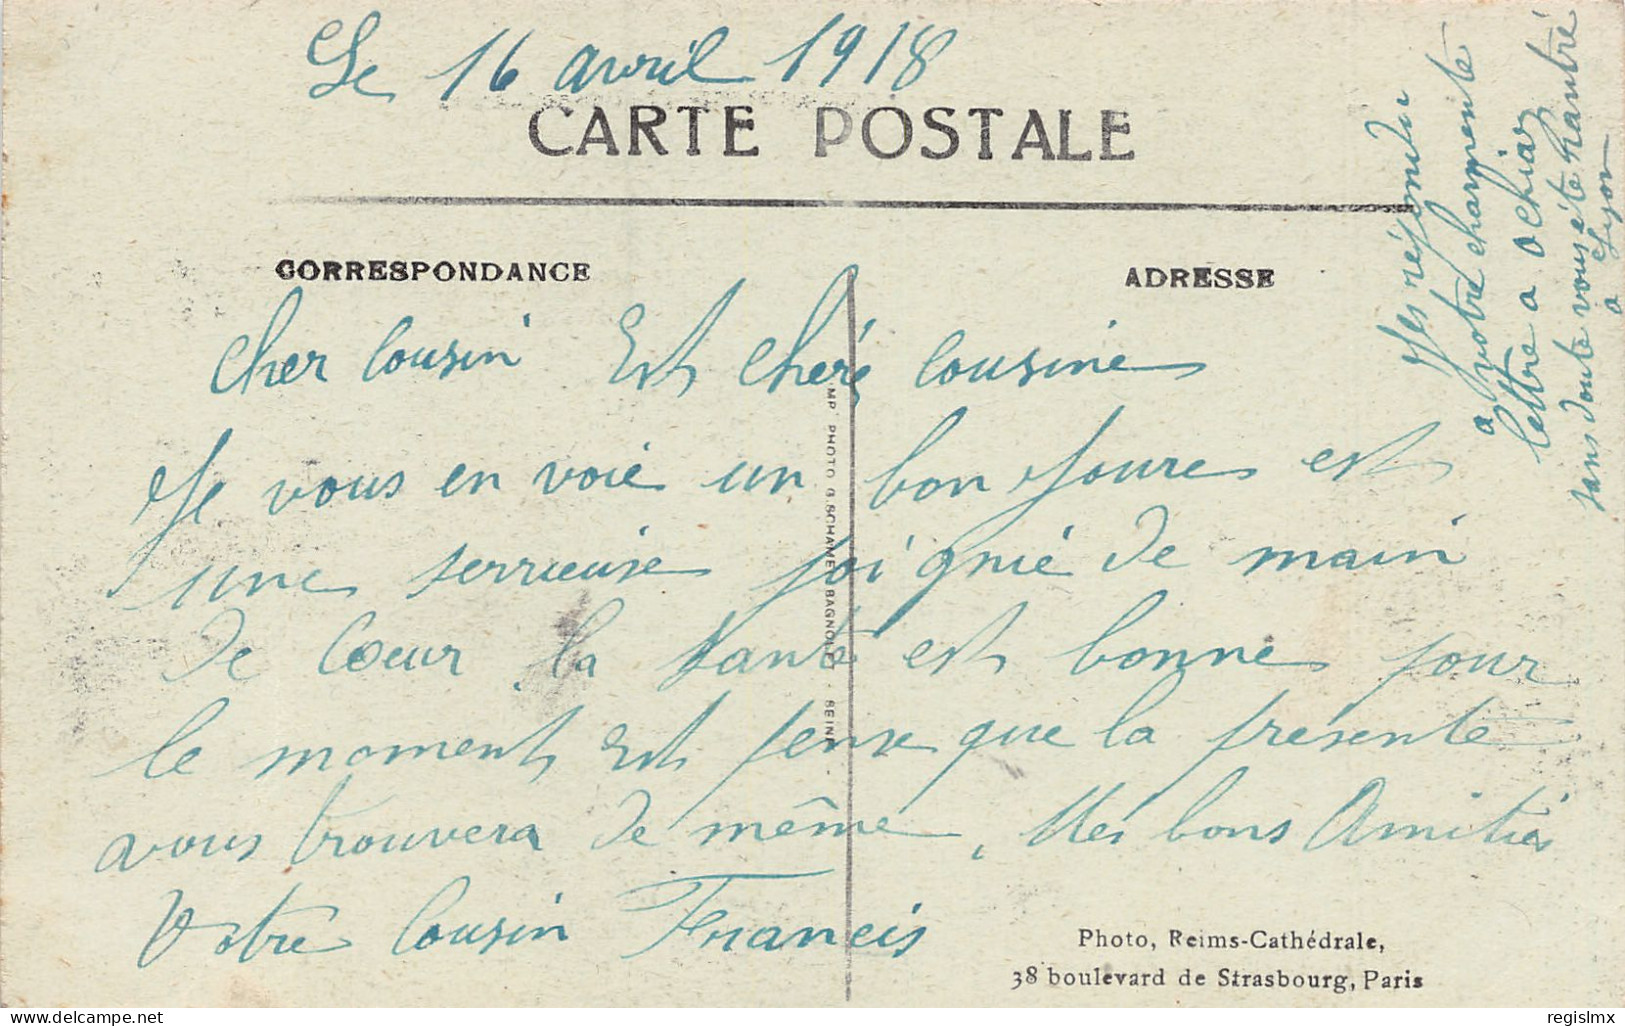 Le 16 avril 1918
CARTE POSTALE
CORRESPONDANCE
ADRESSE
Cher Cousin Est Cheré Cousine
Je vous en voie un bon Joure est
une serrieuse poi gnié de main
de Coeur la Santé est bonne pour
le moment, Est pense que la présente
vous trouvera de même, Mes bons Amitiés
Votre Cousin Francis
Jes réponde
a votre charmente
lettre a
sans doute vous été
à Lyon
IMP PHOTO BAGNOLET - SEINE
Photo, Reims-Cathédrale,
38 boulevard de Strasbourg, Paris
delcampe.net
regislmx